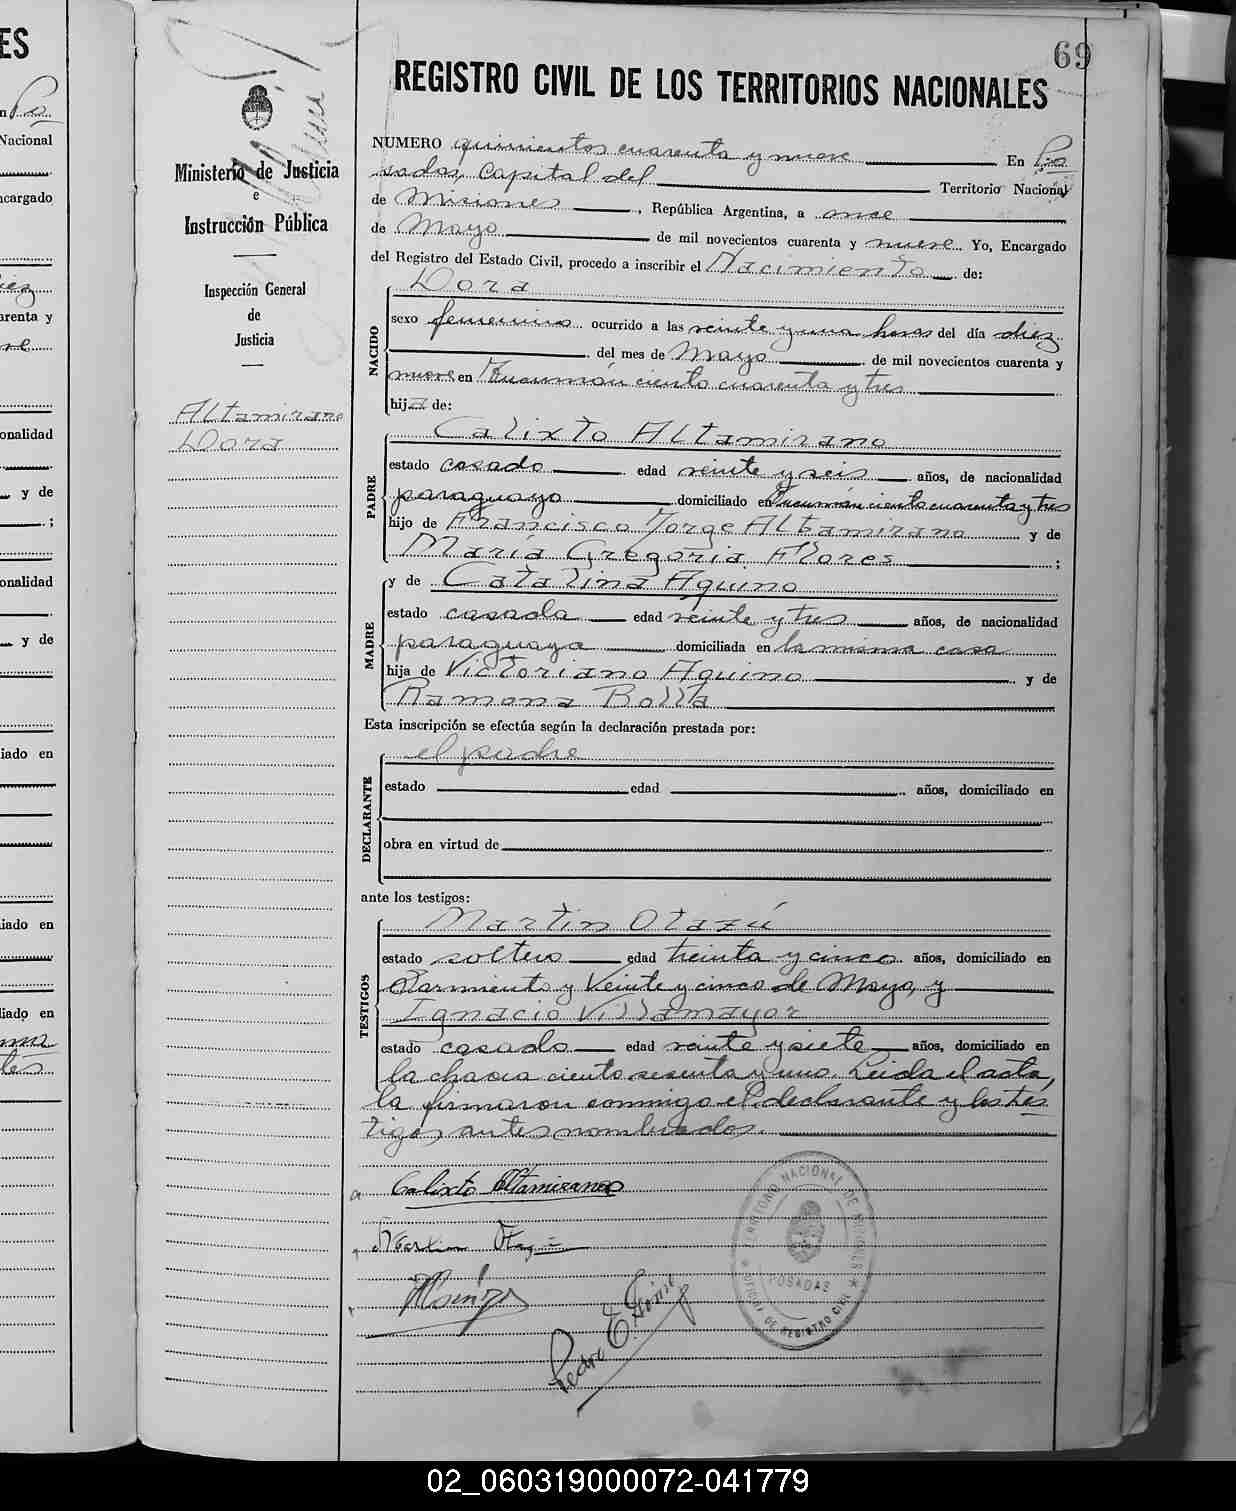 69
REGISTRO CIVIL DE LOS TERRITORIOS NACIONALES
Ministerio de Justicia
e
Instrucción Pública
Inspección General
de
Justicia
Altamirano
Dora
NUMERO quinientos cuarenta y nueve En Po
sadas, Capital del Territorio Nacional
de Misiones, República Argentina, a once
de Mayo de mil novecientos cuarenta y nueve Yo, Encargado
del Registro del Estado Civil, procedo a inscribir el Nacimiento de:
NACIDO
Dora
sexo femenino ocurrido a las veinte y una horas del día diez
del mes de Mayo de mil novecientos cuarenta y
nueve en Tucumán ciento cuarenta y tres
hija de:
PADRE
Calixto Altamirano
estado casado edad veinte y seis años, de nacionalidad
paraguayo domiciliado en Tucumán ciento cuarenta y tres
hijo de Francisco Jorge Altamirano y de
María Gregoria Flores;
MADRE
y de Catalina Aquino
estado casada edad veinte y tres años, de nacionalidad
paraguaya domiciliada en la misma casa
hija de Victoriano Aquino y de
Ramona Bolla
Esta inscripción se efectúa según la declaración prestada por:
DECLARANTE
el padre
estado edad años, domiciliado en
obra en virtud de
ante los testigos:
TESTIGOS
Martin Otazú
estado soltero edad treinta y cinco años, domiciliado en
Sarmiento y Veinte y cinco de Mayo, y
Ignacio Villamayor
estado casado edad veinte y siete años, domiciliado en
la chacra ciento sesenta y uno. Leída el acta,
la firmaron conmigo el declarante y los tes
tigos antes nombrados.
Calixto Altamirano
Martin Otazú
Pedro E.
TERRITORIO NACIONAL DE MISIONES
POSADAS
OFICINA DE REGISTRO CIVIL
02_060319000072-041779